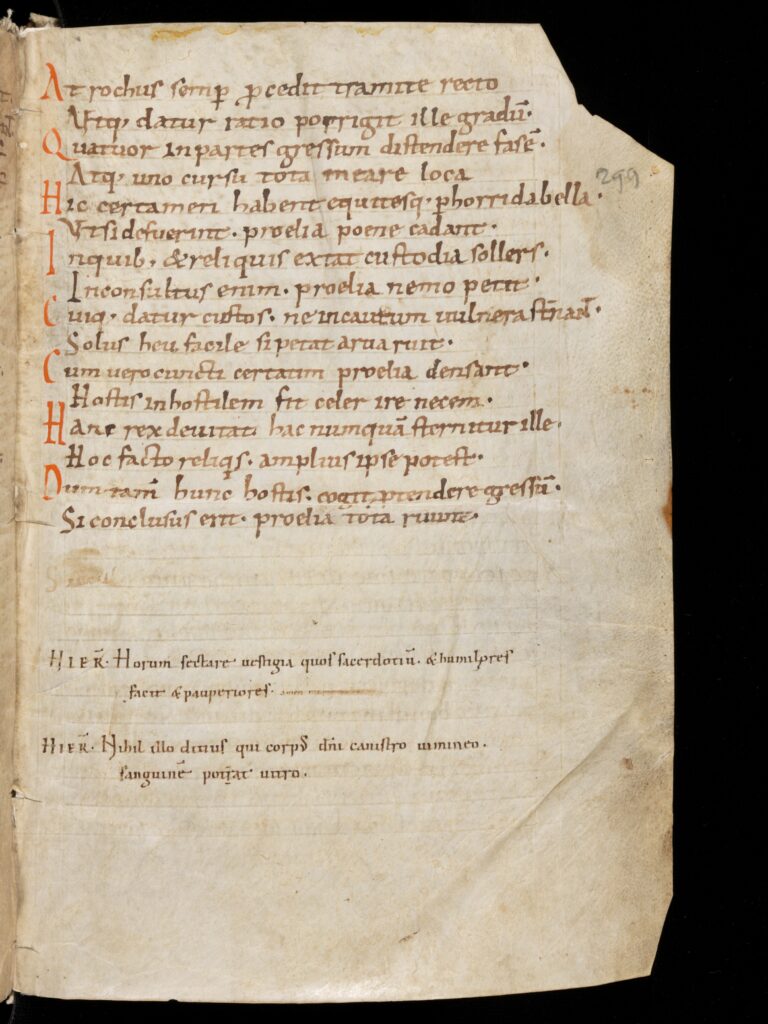 At rochus semp pcedit tramite recto
Atq; datur ratio porrigit ille gradū·
Quatuor in partes gressum distendere fasē·
Atq; uno cursu tota meare loca
299
Hic certamen habent equitesq· p horrida bella·
Ut si defuerint· proelia poene cadant·
In quib; & reliquis extat custodia sollers·
Inconsultus enim· proelia nemo petit·
Cuiq· datur custos· ne incautum vulnera
Solus heu facile si petat arva ruit·
Cum vero cuncti certatim proelia densant·
Hostis in hostilem fit celer ire necem·
Hanc rex devitat· hac numquā sternitur ille·
Hoc facto reliqs· amplius ipse potest·
Dum tam̄ hunc hostis· cogit ptendere gressū·
Si conclusus erit· proelia tota ruunt·
HIER̄· Horum sectare vestigia quos sacerdotiū· & humil pres
facit & pauperiores·
HIER̄· Nihil illo ditius qui corpꝰ dn̄i canistro vimineo·
sanguinē portat vitro·